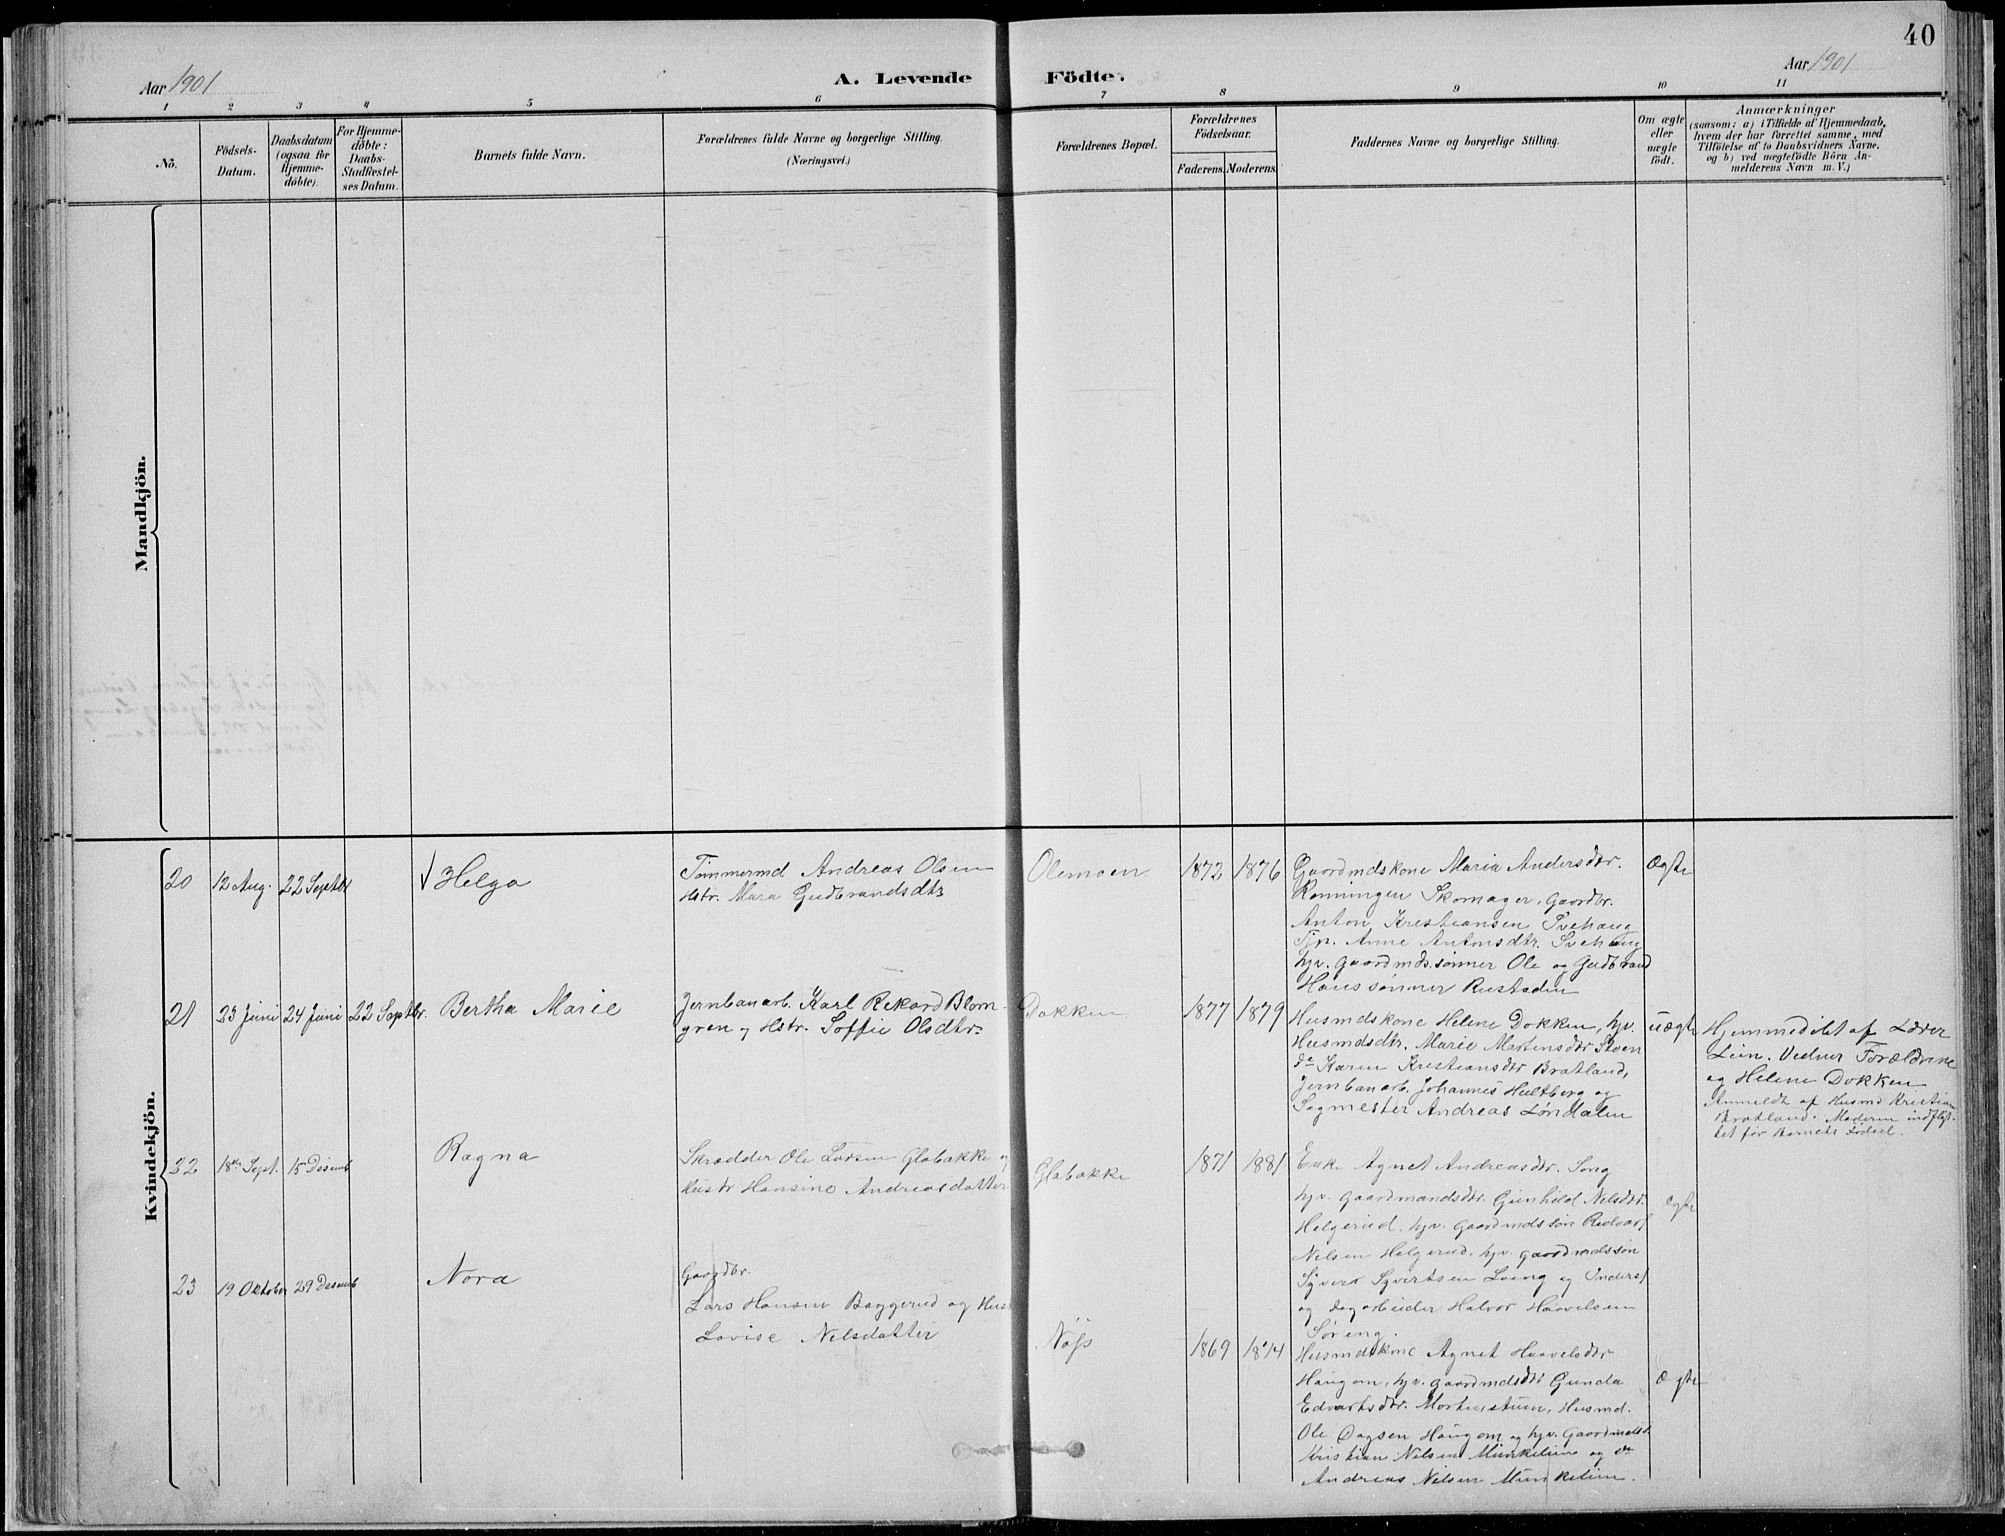 40
Aar 1901
A. Levende Födte.
Aar 1901
1 2 3 4 5 6 7 8 9 10 11
No.
Födsels-
Datum.
Daabsdatum
(ogsaa for
Hjemme-
döbte).
For Hjemme-
döbte:
Daabs-
Stadfæstel-
ses Datum.
Barnets fulde Navn.
Forældrenes fulde Navne og borgerlige Stilling.
(Næringsvei.)
Forældrenes Bopæl.
Forældrenes
Födselsaar.
Faderens. Moderens.
Faddernes Navne og borgerlige Stilling.
Om ægte
eller
uægte
født.
Anmærkninger
(saasom: a) i Tilfælde af Hjemmedaab,
hvem der har forrettet samme, med
Tilföielse af to Daabsvidners Navne,
og b) ved uægtefödte Börn An-
melderens Navn m. V.)
Mandkjön.
Kvindekjön.
20
12 Aug.
22 Septbr
Helga
Tømmermd Andreas Olsen
Hstr. Mara Gudbrandsdtr
Olemoen
1872
1876
Gaardmdskone Maria Andersdtr.
Rønningen Skomager, Gaardbr.
Anton Kristiansen Svehaug
Tjp. Anne Antonsdtr. Svehaug
hjv. Gaardmds.sønner Ole og Gudbrand
Hanssønner Rustaden
Ægte
21
23 Juni
24 Juni
22 Septbr.
Bertha Marie
Jernbanarb. Karl Rikard Blom-
gren og Hstr. Soffie Olsdtr.
Dokken
1877
1879
Husmdskone Helene Dokken, hjv.
Husmdsdtr. Marie Martinsdtr
do Karen Kristiansdtr Bratland,
Jernbanarb. Johannes Hultberg og
Sagmester Andreas
uægte
Hjemmedöbt af Lærer
Lien. Vidner Forældrene
og Helene Dokken
Anmeldt af Husmd Kristian
Bratland. Moderen indflyt-
tet før Barnets Fødsel.
22
18de Sept.
15 Desemb
Ragna
Skrædder Ole Larsen Glabakke og
Hustr Hansine Andreasdatter
Glabakke
1871
1881
Enke Agnet Andreasdtr. Song
hjv. Gaardmandsdtr. Gunhild Nelsdtr.
Helgerud, hjv. Gaardmdssøn
Nelsen Helgerud, hjv. gaardmdssøn
Syver Syvertsen Loeng og
og dagarbeider Halvor Haavelsen
Søreng.
Ægte
23
19 Oktober
29 Desemb
Nora
Gaardbr.
Lars Hansen Baggerud og Hust
Lovise Nelsdatter
Nøss
1869
1874
Husmdskone Agnet Haavelsdtr
Haugom, hjv. gaardmdsdtr Gunda
Edvartsdtr. Mortenstuen, Husmd.
Ole Dagsen Haugom og hjv. Gaardmdss.
Kristian Nilsen Munkelien og do
Andreas Nilsen Munkelien.
Ægte